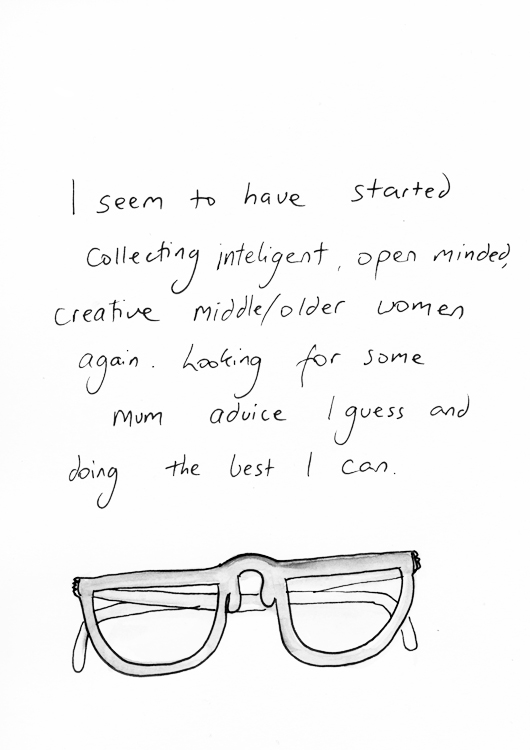 I seem to have started
collecting inteligent, open minded,
creative middle/older women
again. Looking for some
mum advice I guess and
doing the best I can.